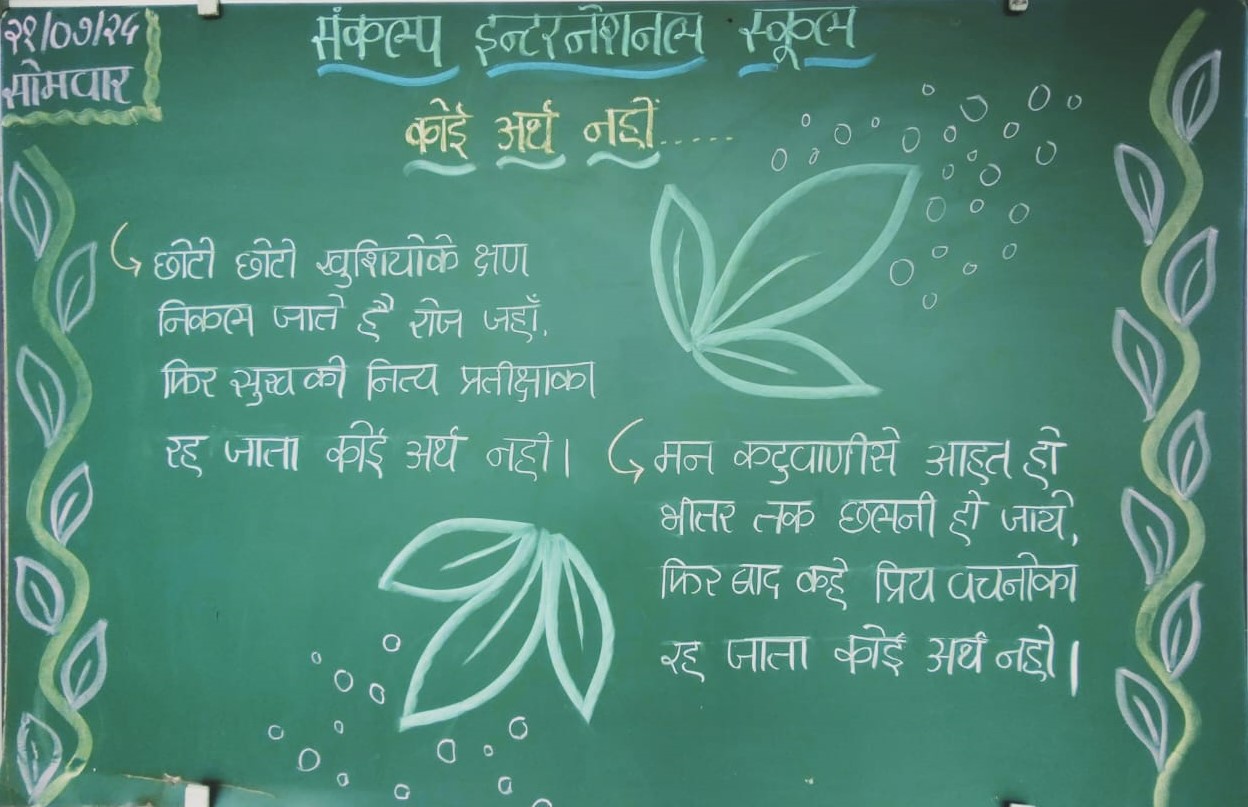 २१/०७/२५
सोमवार
संकल्प इन्टरनेशनल स्कूल
कोई अर्थ नहीं.....
छोटी छोटी खुशियोके क्षण
निकल जाते है रोज जहाँ,
फिर सुख की नित्य प्रतीक्षाका
रह जाता कोई अर्थ नही।
मन कटुवाणीसे आहत हो
भीतर तक छलनी हो जाये,
फिर बाद कहे प्रिय वचनोका
रह जाता कोई अर्थ नही।